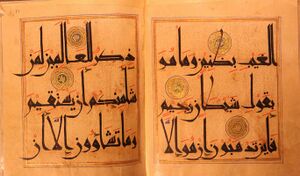 الغيب بضنين وما هو
بقول شيطان رجيم
فأين تذهبون إن هو إلا
ذكر للعالمين لمن
شاء منكم أن يستقيم
وما تشاؤون إلا أن